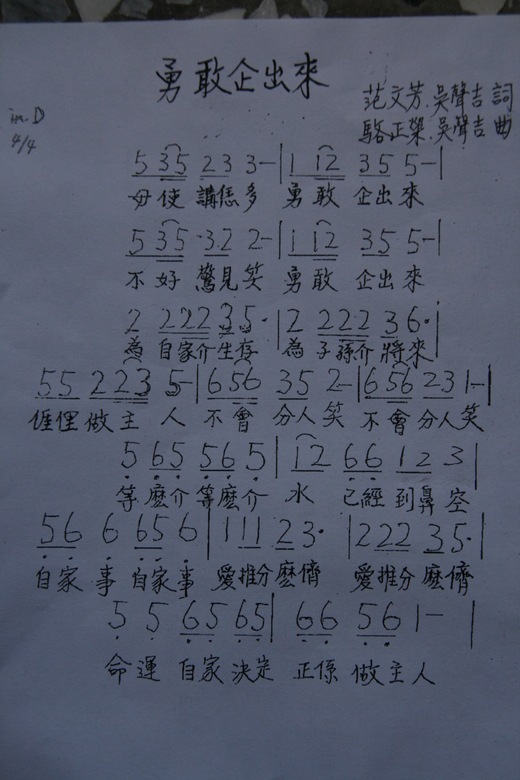 勇敢企出來
in D
4/4
范文芳.吳聲吉 詞
駱正榮.吳聲吉 曲
5 35 23 3-|1 12 35 5-|
毋使 講恁多 勇敢 企出來
5 35 ·32 2-|1 12 35 5-|
不好 驚見笑 勇敢 企出來
2 2222 35·|2 222 36·|
為 自家介生存 為 子孫介將來
55 223 5-|6 56 35 2-|6 56 231-|
𠊎俚 做主 人 不會 分人笑 不會分人笑
5 65 56 5|12 66 12 3|
等 麼介 等麼介 水 已經 到鼻空
56 6 65 6|1 11 23·|222 35·|
自家 事 自家事 愛推分麼儕 愛推分麼儕
5 5 65 65|66 56 1-|
命運 自家 決定 正係 做主人